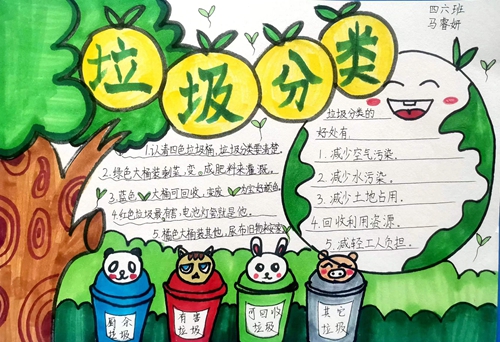 四六班
马睿妍
垃圾分类
1.认清四色垃圾桶,垃圾分类要清楚。
2.绿色大桶装剩菜,变成肥料来灌溉。
3.蓝色大桶可回收,变废为宝好颜色
4.红色垃圾最有害,电池灯管就是他。
5.橘色大桶装其他,尿布旧物
垃圾分类的
好处有:
1.减少空气污染。
2.减少水污染。
3.减少土地占用。
4.回收利用资源。
5.减轻工人负担。
厨余
垃圾
有害
垃圾
可回收
垃圾
其它
垃圾